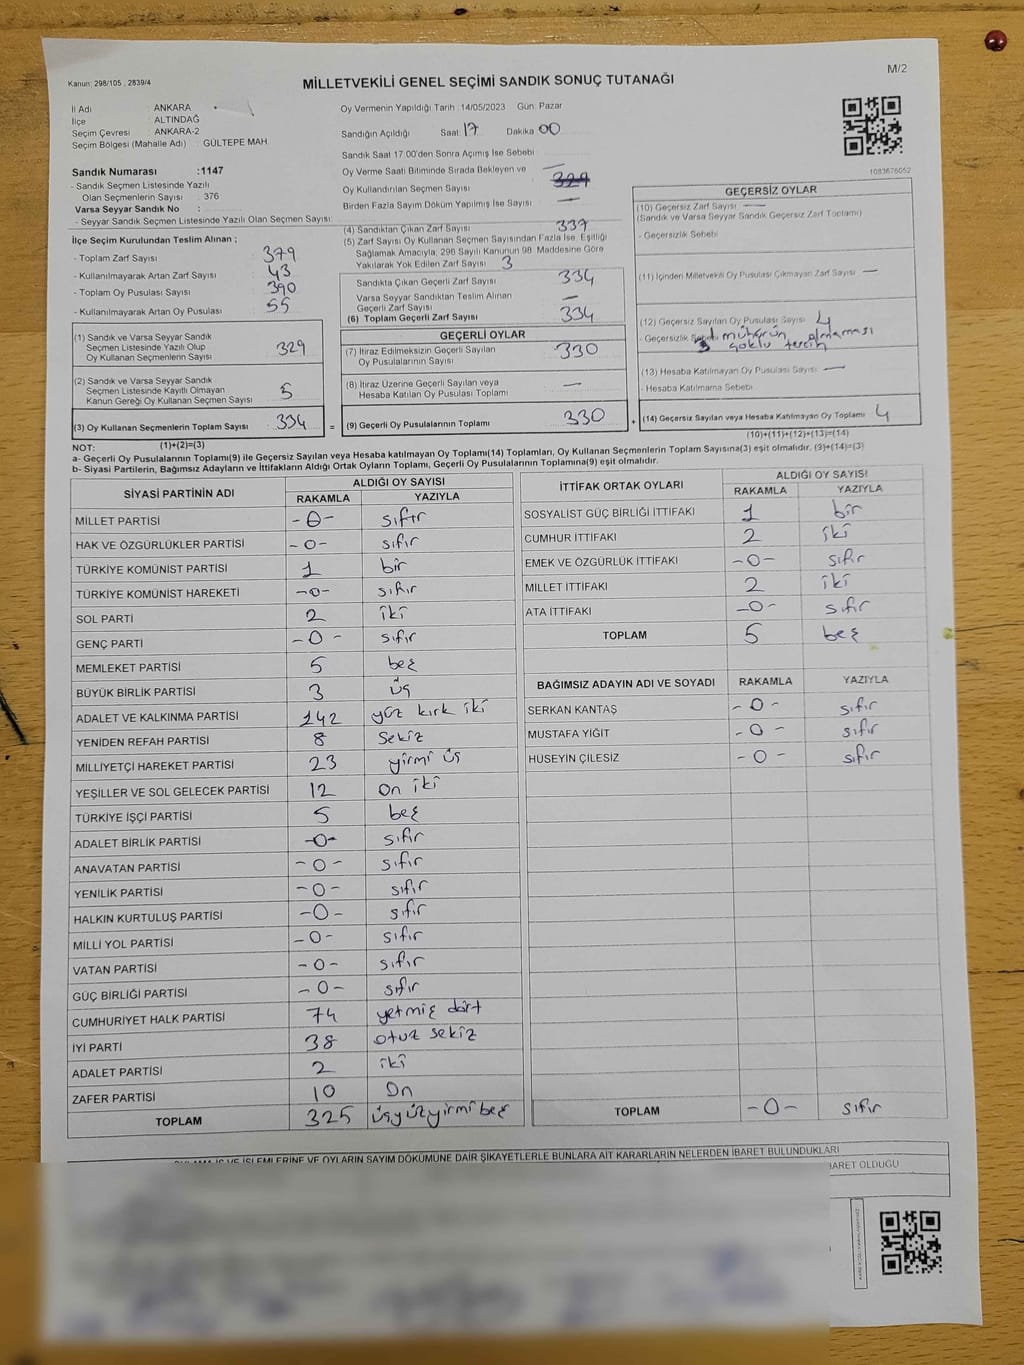 Kanun: 298/105 , 2839/4
MİLLETVEKİLİ GENEL SEÇİMİ SANDIK SONUÇ TUTANAĞI
M/2
İl Adı : ANKARA
İlçe : ALTINDAĞ
Seçim Çevresi : ANKARA-2
Seçim Bölgesi (Mahalle Adı) : GÜLTEPE MAH.
Oy Vermenin Yapıldığı Tarih :14/05/2023 Gün: Pazar
Sandığın Açıldığı Saat: 17 Dakika 00
Sandık Saat 17:00'den Sonra Açımış İse Sebebi
Oy Verme Saati Bitiminde Sırada Bekleyen ve
Oy Kullandırılan Seçmen Sayısı 329
Birden Fazla Sayım Döküm Yapılmış İse Sayısı —
1083676052
Sandık Numarası :1147
- Sandık Seçmen Listesinde Yazılı
Olan Seçmenlerin Sayısı : 376
Varsa Seyyar Sandık No :
- Seyyar Sandık Seçmen Listesinde Yazılı Olan Seçmen Sayısı:
İlçe Seçim Kurulundan Teslim Alınan ;
- Toplam Zarf Sayısı : 379
- Kullanılmayarak Artan Zarf Sayısı : 43
- Toplam Oy Pusulası Sayısı : 390
- Kullanılmayarak Artan Oy Pusulası : 55
(1) Sandık ve Varsa Seyyar Sandık
Seçmen Listesinde Yazılı Olup
Oy Kullanan Seçmenlerin Sayısı : 329
(2) Sandık ve Varsa Seyyar Sandık
Seçmen Listesinde Kayıtlı Olmayan
Kanun Gereği Oy Kullanan Seçmen Sayısı : 5
(3) Oy Kullanan Seçmenlerin Toplam Sayısı : 334 =
(1)+(2)=(3)
(4) Sandıktan Çıkan Zarf Sayısı 337
(5) Zarf Sayısı Oy Kullanan Seçmen Sayısından Fazla İse, Eşitliği
Sağlamak Amacıyla, 298 Sayılı Kanunun 98. Maddesine Göre
Yakılarak Yok Edilen Zarf Sayısı 3
Sandıkta Çıkan Geçerli Zarf Sayısı 334
Varsa Seyyar Sandıktan Teslim Alınan
Geçerli Zarf Sayısı —
(6) Toplam Geçerli Zarf Sayısı 334
GEÇERLİ OYLAR
(7) İtiraz Edilmeksizin Geçerli Sayılan
Oy Pusulalarının Sayısı 330
(8) İtiraz Üzerine Geçerli Sayılan veya
Hesaba Katılan Oy Pusulası Toplamı —
(9) Geçerli Oy Pusulalarının Toplamı 330 +
GEÇERSİZ OYLAR
(10) Geçersiz Zarf Sayısı —
(Sandık ve Varsa Seyyar Sandık Geçersiz Zarf Toplamı)
- Geçersizlik Sebebi
(11) İçinden Milletvekili Oy Pusulası Çıkmayan Zarf Sayısı —
(12) Geçersiz Sayılan Oy Pusulası Sayısı 4
- Geçersizlik Sebebi 1 mührün olmaması
3 çoklu tercih
(13) Hesaba Katılmayan Oy Pusulası Sayısı —
- Hesaba Katılmama Sebebi
(14) Geçersiz Sayılan veya Hesaba Katılmayan Oy Toplamı 4
(10)+(11)+(12)+(13)=(14)
NOT:
a- Geçerli Oy Pusulalarının Toplamı(9) ile Geçersiz Sayılan veya Hesaba katılmayan Oy Toplamı(14) Toplamları, Oy Kullanan Seçmenlerin Toplam Sayısına(3) eşit olmalıdır. (3)+(14)=(3)
b- Siyasi Partilerin, Bağımsız Adayların ve İttifakların Aldığı Ortak Oyların Toplamı, Geçerli Oy Pusulalarının Toplamına(9) eşit olmalıdır.
SİYASİ PARTİNİN ADI ALDIĞI OY SAYISI
RAKAMLA YAZIYLA
MİLLET PARTİSİ -0- sıfır
HAK VE ÖZGÜRLÜKLER PARTİSİ -0- sıfır
TÜRKİYE KOMÜNİST PARTİSİ 1 bir
TÜRKİYE KOMÜNİST HAREKETİ -0- sıfır
SOL PARTİ 2 iki
GENÇ PARTİ -0- sıfır
MEMLEKET PARTİSİ 5 beş
BÜYÜK BİRLİK PARTİSİ 3 üç
ADALET VE KALKINMA PARTİSİ 142 yüz kırk iki
YENİDEN REFAH PARTİSİ 8 Sekiz
MİLLİYETÇİ HAREKET PARTİSİ 23 yirmi üç
YEŞİLLER VE SOL GELECEK PARTİSİ 12 On iki
TÜRKİYE İŞÇİ PARTİSİ 5 beş
ADALET BİRLİK PARTİSİ -0- sıfır
ANAVATAN PARTİSİ -0- sıfır
YENİLİK PARTİSİ -0- sıfır
HALKIN KURTULUŞ PARTİSİ -0- sıfır
MİLLİ YOL PARTİSİ -0- sıfır
VATAN PARTİSİ -0- sıfır
GÜÇ BİRLİĞİ PARTİSİ -0- sıfır
CUMHURİYET HALK PARTİSİ 74 yetmiş dört
İYİ PARTİ 38 otuz sekiz
ADALET PARTİSİ 2 iki
ZAFER PARTİSİ 10 On
TOPLAM 325 üçyüzyirmibeş
İTTİFAK ORTAK OYLARI ALDIĞI OY SAYISI
RAKAMLA YAZIYLA
SOSYALİST GÜÇ BİRLİĞİ İTTİFAKI 1 bir
CUMHUR İTTİFAKI 2 iki
EMEK VE ÖZGÜRLÜK İTTİFAKI -0- sıfır
MİLLET İTTİFAKI 2 iki
ATA İTTİFAKI -0- sıfır
TOPLAM 5 beş
BAĞIMSIZ ADAYIN ADI VE SOYADI RAKAMLA YAZIYLA
SERKAN KANTAŞ -0- sıfır
MUSTAFA YİĞİT -0- sıfır
HÜSEYİN ÇİLESİZ -0- sıfır
TOPLAM -0- sıfır
İŞ VE İŞLEMLERİNE VE OYLARIN SAYIM DÖKÜMÜNE DAİR ŞİKAYETLERLE BUNLARA AİT KARARLARIN NELERDEN İBARET BULUNDUKLARI
İBARET OLDUĞU